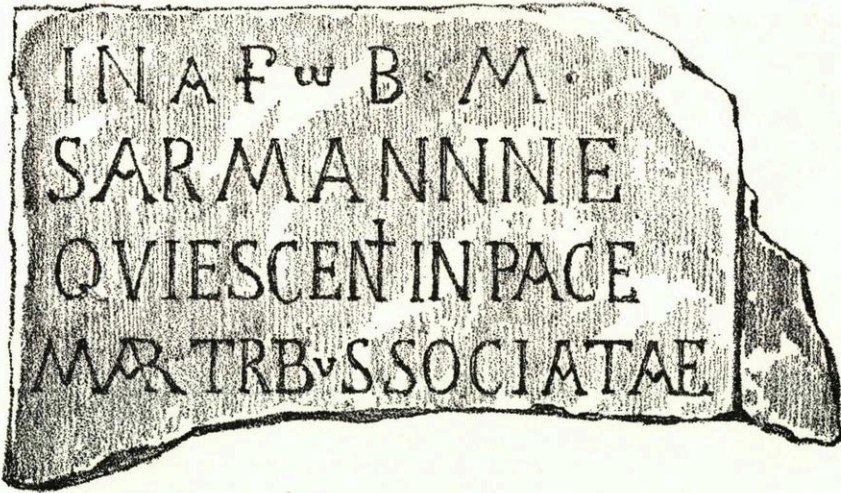 IN A ⳨ ω B · M ·
SARMANNNE
QVIESCENT IN PACE
MARTRBVS SOCIATAE